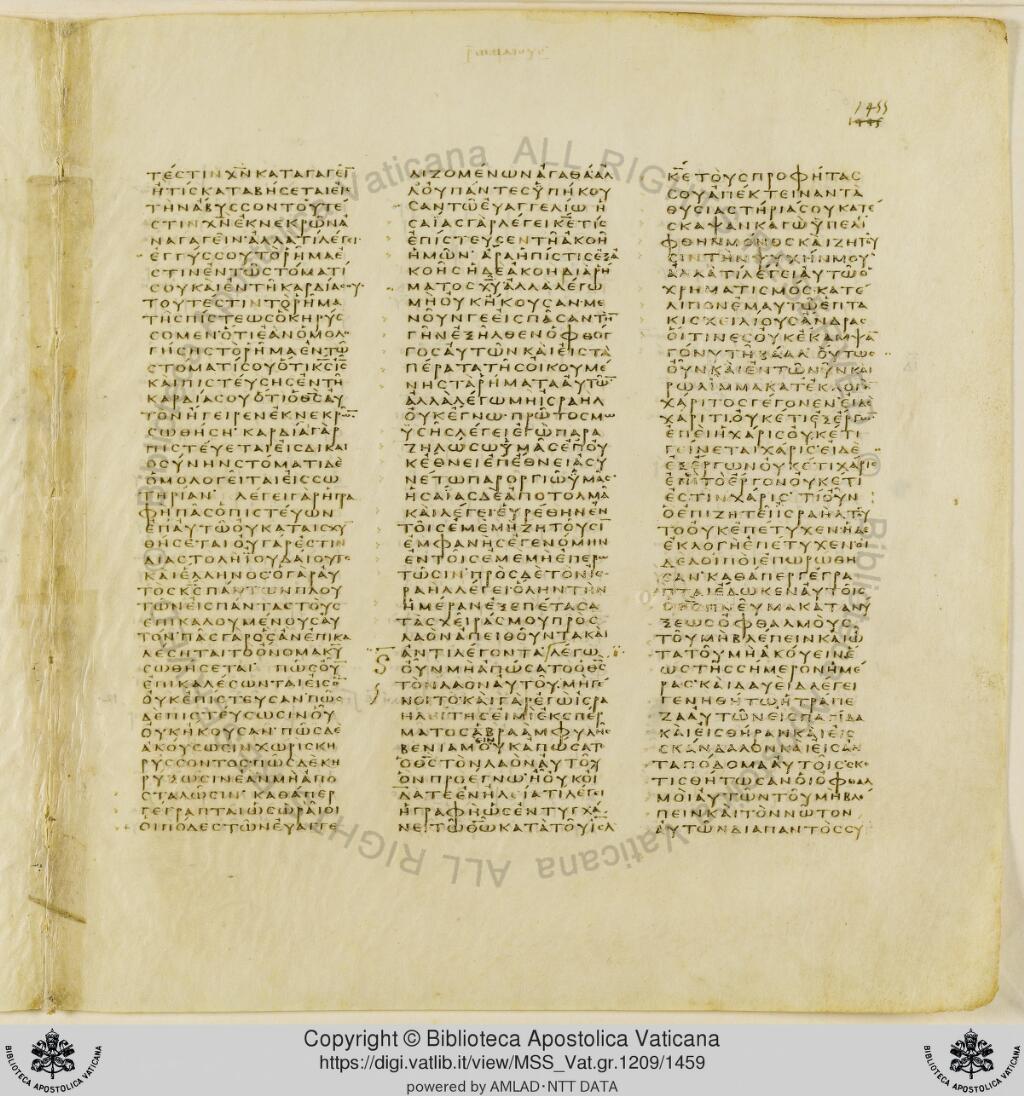 1455
ΤΕΣΤΙΝΧΝΚΑΤΑΓΑΓΕΙ
ΗΤΙΣΚΑΤΑΒΗΣΕΤΑΙΕΙΣ
ΤΗΝΑΒΥΣΣΟΝΤΟΥΤΕ
ΣΤΙΝΧΝΕΚΝΕΚΡΩΝΑ
ΝΑΓΑΓΕΙΝΑΛΛΑΤΙΛΕΓΕΙ
ΕΓΓΥΣΣΟΥΤΟΡΗΜΑΕ
ΣΤΙΝΕΝΤΩΣΤΟΜΑΤΙ
ΣΟΥΚΑΙΕΝΤΗΚΑΡΔΙΑΣΟΥ
ΤΟΥΤΕΣΤΙΝΤΟΡΗΜΑ
ΤΗΣΠΙΣΤΕΩΣΟΚΗΡΥΣ
ΣΟΜΕΝΟΤΙΕΑΝΟΜΟΛΟ
ΓΗΣΗΣΤΟΡΗΜΑΕΝΤΩ
ΣΤΟΜΑΤΙΣΟΥΟΤΙΚΣΙΣ
ΚΑΙΠΙΣΤΕΥΣΗΣΕΝΤΗ
ΚΑΡΔΙΑΣΟΥΟΤΙΟΘΣΑΥ
ΤΟΝΗΓΕΙΡΕΝΕΚΝΕΚΡΩ
ΣΩΘΗΣΗΚΑΡΔΙΑΓΑΡ
ΠΙΣΤΕΥΕΤΑΙΕΙΣΔΙΚΑΙ
ΟΣΥΝΗΝΣΤΟΜΑΤΙΔΕ
ΟΜΟΛΟΓΕΙΤΑΙΕΙΣΣΩ
ΤΗΡΙΑΝ ΛΕΓΕΙΓΑΡΗΓΡΑ
ΦΗΠΑΣΟΠΙΣΤΕΥΩΝ
ΕΠΑΥΤΩΟΥΚΑΤΑΙΣΧΥ
ΘΗΣΕΤΑΙΟΥΓΑΡΕΣΤΙΝ
ΔΙΑΣΤΟΛΗΙΟΥΔΑΙΟΥΤΕ
ΚΑΙΕΛΛΗΝΟΣΟΓΑΡΑΥ
ΤΟΣΚΣΠΑΝΤΩΝΠΛΟΥ
ΤΩΝΕΙΣΠΑΝΤΑΣΤΟΥΣ
ΕΠΙΚΑΛΟΥΜΕΝΟΥΣΑΥ
ΤΟΝΠΑΣΓΑΡΟΣΑΝΕΠΙΚΑ
ΛΕΣΗΤΑΙΤΟΟΝΟΜΑΚΥ
ΣΩΘΗΣΕΤΑΙ ΠΩΣΟΥ
ΕΠΙΚΑΛΕΣΩΝΤΑΙΕΙΣΟ
ΟΥΚΕΠΙΣΤΕΥΣΑΝΠΩΣ
ΔΕΠΙΣΤΕΥΣΩΣΙΝΟΥ
ΟΥΚΗΚΟΥΣΑΝΠΩΣΔΕ
ΑΚΟΥΣΩΣΙΝΧΩΡΙΣΚΗ
ΡΥΣΣΟΝΤΟΣΠΩΣΔΕΚΗ
ΡΥΞΩΣΙΝΕΑΝΜΗΑΠΟ
ΣΤΑΛΩΣΙΝΚΑΘΑΠΕΡ
ΓΕΓΡΑΠΤΑΙΩΣΩΡΑΙΟΙ
ΟΙΠΟΔΕΣΤΩΝΕΥΑΓΓΕ
ΛΙΖΟΜΕΝΩΝΑΓΑΘΑΑΛ
ΛΟΥΠΑΝΤΕΣΥΠΗΚΟΥ
ΣΑΝΤΩΕΥΑΓΓΕΛΙΩΗ
ΣΑΙΑΣΓΑΡΛΕΓΕΙΚΕΤΙΣ
ΕΠΙΣΤΕΥΣΕΝΤΗΑΚΟΗ
ΗΜΩΝΑΡΑΗΠΙΣΤΙΣΕΞΑ
ΚΟΗΣΗΔΕΑΚΟΗΔΙΑΡΗ
ΜΑΤΟΣΧΥΑΛΛΑΛΕΓΩ
ΜΗΟΥΚΗΚΟΥΣΑΝΜΕ
ΝΟΥΝΓΕΕΙΣΠΑΣΑΝΤΗ
ΓΗΝΕΞΗΛΘΕΝΟΦΘΟΓ
ΓΟΣΑΥΤΩΝΚΑΙΕΙΣΤΑ
ΠΕΡΑΤΑΤΗΣΟΙΚΟΥΜΕ
ΝΗΣΤΑΡΗΜΑΤΑΑΥΤΩ
ΑΛΛΑΛΕΓΩΜΗΙΣΡΑΗΛ
ΟΥΚΕΓΝΩΠΡΩΤΟΣΜΩ
ΥΣΗΣΛΕΓΕΙΕΓΩΠΑΡΑ
ΖΗΛΩΣΩΥΜΑΣΕΠΟΥ
ΚΕΘΝΕΙΕΠΕΘΝΕΙΑΣΥ
ΝΕΤΩΠΑΡΟΡΓΙΩΥΜΑΣ
ΗΣΑΙΑΣΔΕΑΠΟΤΟΛΜΑ
ΚΑΙΛΕΓΕΙΕΥΡΕΘΗΝΕΝ
ΤΟΙΣΕΜΕΜΗΖΗΤΟΥΣΙ
ΕΜΦΑΝΗΣΕΓΕΝΟΜΗΝ
ΕΝΤΟΙΣΕΜΕΜΗΕΠΕΡΩ
ΤΩΣΙΝΠΡΟΣΔΕΤΟΝΙΣ
ΡΑΗΛΛΕΓΕΙΟΛΗΝΤΗΝ
ΗΜΕΡΑΝΕΞΕΠΕΤΑΣΑ
ΤΑΣΧΕΙΡΑΣΜΟΥΠΡΟΣ
ΛΑΟΝΑΠΕΙΘΟΥΝΤΑΚΑΙ
ΑΝΤΙΛΕΓΟΝΤΑΛΕΓΩ
ΟΥΝΜΗΑΠΩΣΑΤΟΟΘΣ
ΤΟΝΛΑΟΝΑΥΤΟΥΜΗΓΕ
ΝΟΙΤΟΚΑΙΓΑΡΕΓΩΙΣΡΑ
ΗΛΕΙΤΗΣΕΙΜΙΕΚΣΠΕΡ
ΜΑΤΟΣΑΒΡΑΑΜΦΥΛΗΣ
ΒΕΝΙΑΜΕΙΝΟΥΚΑΠΩΣΑΤ
ΟΘΣΤΟΝΛΑΟΝΑΥΤΟΥ
ΟΝΠΡΟΕΓΝΩΗΟΥΚΟΙ
ΔΑΤΕΕΝΗΛΕΙΑΤΙΛΕΓΕΙ
ΗΓΡΑΦΗΩΣΕΝΤΥΓΧΑ
ΝΕΙΤΩΘΩΚΑΤΑΤΟΥΙΣΛ
ΚΕΤΟΥΣΠΡΟΦΗΤΑΣ
ΣΟΥΑΠΕΚΤΕΙΝΑΝΤΑ
ΘΥΣΙΑΣΤΗΡΙΑΣΟΥΚΑΤΕ
ΣΚΑΨΑΝΚΑΓΩΥΠΕΛΙ
ΦΘΗΝΜΟΝΟΣΚΑΙΖΗΤΟΥ
ΣΙΝΤΗΝΨΥΧΗΝΜΟΥ
ΑΛΛΑΤΙΛΕΓΕΙΑΥΤΩΟ
ΧΡΗΜΑΤΙΣΜΟΣΚΑΤΕ
ΛΙΠΟΝΕΜΑΥΤΩΕΠΤΑ
ΚΙΣΧΕΙΛΙΟΥΣΑΝΔΡΑΣ
ΟΙΤΙΝΕΣΟΥΚΕΚΑΜΨΑ
ΓΟΝΥΤΗΒΑΑΛΟΥΤΩΣ
ΟΥΝΚΑΙΕΝΤΩΝΥΝΚΑΙ
ΡΩΛΙΜΜΑΚΑΤΕΚΛΟΓΗ
ΧΑΡΙΤΟΣΓΕΓΟΝΕΝΕΙΔΕ
ΧΑΡΙΤΙΟΥΚΕΤΙΕΞΕΡΓΩ
ΕΠΕΙΗΧΑΡΙΣΟΥΚΕΤΙ
ΓΕΙΝΕΤΑΙΧΑΡΙΣΕΙΔΕ
ΕΞΕΡΓΩΝΟΥΚΕΤΙΧΑΡΙΣ
ΕΠΕΙΤΟΕΡΓΟΝΟΥΚΕΤΙ
ΕΣΤΙΝΧΑΡΙΣΤΙΟΥΝ
ΟΕΠΙΖΗΤΕΙΙΣΡΑΗΛΤΟΥ
ΤΟΟΥΚΕΠΕΤΥΧΕΝΗΔΕ
ΕΚΛΟΓΗΕΠΕΤΥΧΕΝΟΙ
ΔΕΛΟΙΠΟΙΕΠΩΡΩΘΗ
ΣΑΝΚΑΘΑΠΕΡΓΕΓΡΑ
ΠΤΑΙΕΔΩΚΕΝΑΥΤΟΙΣ
ΟΘΣΠΝΕΥΜΑΚΑΤΑΝΥ
ΞΕΩΣΟΦΘΑΛΜΟΥΣ
ΤΟΥΜΗΒΛΕΠΕΙΝΚΑΙΩ
ΤΑΤΟΥΜΗΑΚΟΥΕΙΝΕ
ΩΣΤΗΣΣΗΜΕΡΟΝΗΜΕ
ΡΑΣΚΑΙΔΑΥΕΙΔΛΕΓΕΙ
ΓΕΝΗΘΗΤΩΗΤΡΑΠΕ
ΖΑΑΥΤΩΝΕΙΣΠΑΓΙΔΑ
ΚΑΙΕΙΣΘΗΡΑΝΚΑΙΕΙΣ
ΣΚΑΝΔΑΛΟΝΚΑΙΕΙΣΑΝ
ΤΑΠΟΔΟΜΑΑΥΤΟΙΣΣΚΟ
ΤΙΣΘΗΤΩΣΑΝΟΙΟΦΘΑΛ
ΜΟΙΑΥΤΩΝΤΟΥΜΗΒΛΕ
ΠΕΙΝΚΑΙΤΟΝΝΩΤΟΝ
ΑΥΤΩΝΔΙΑΠΑΝΤΟΣΣΥ
Copyright © Biblioteca Apostolica Vaticana
https://digi.vatlib.it/view/MSS_Vat.gr.1209/1459
powered by AMLAD·NTT DATA
BIBLIOTECA APOSTOLICA VATICANA
BIBLIOTECA APOSTOLICA VATICANA